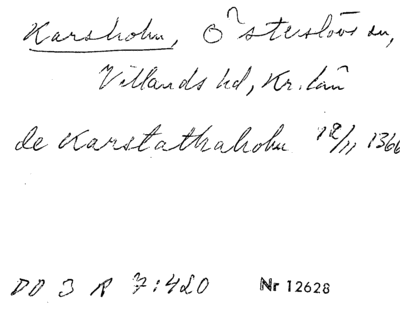 Karsholm, Österslövs sn,
Villands hd, Kr. län
de Karstathaholm 12/11 1366
DD 3 R 7:420 Nr 12628